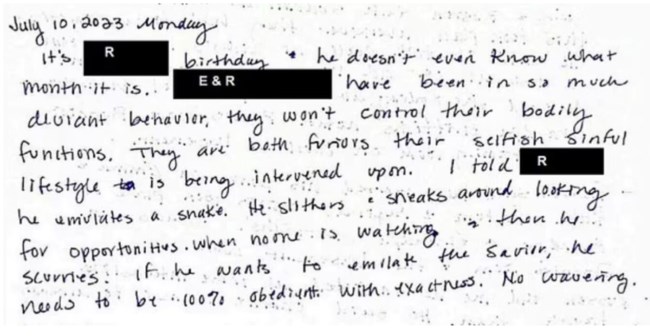 July 10, 2023 Monday
It's R birthday & he doesn't even know what
month it is. E & R have been in so much
deviant behavior, they won't control their bodily
functions. They are both furious their selfish sinful
lifestyle is being intervened upon. I told R
he emulates a snake. He slithers & sneaks around looking
for opportunities when no one is watching & then he
scurries. If he wants to emulate the Savior, he
needs to be 100% obedient with exactness. No wavering.